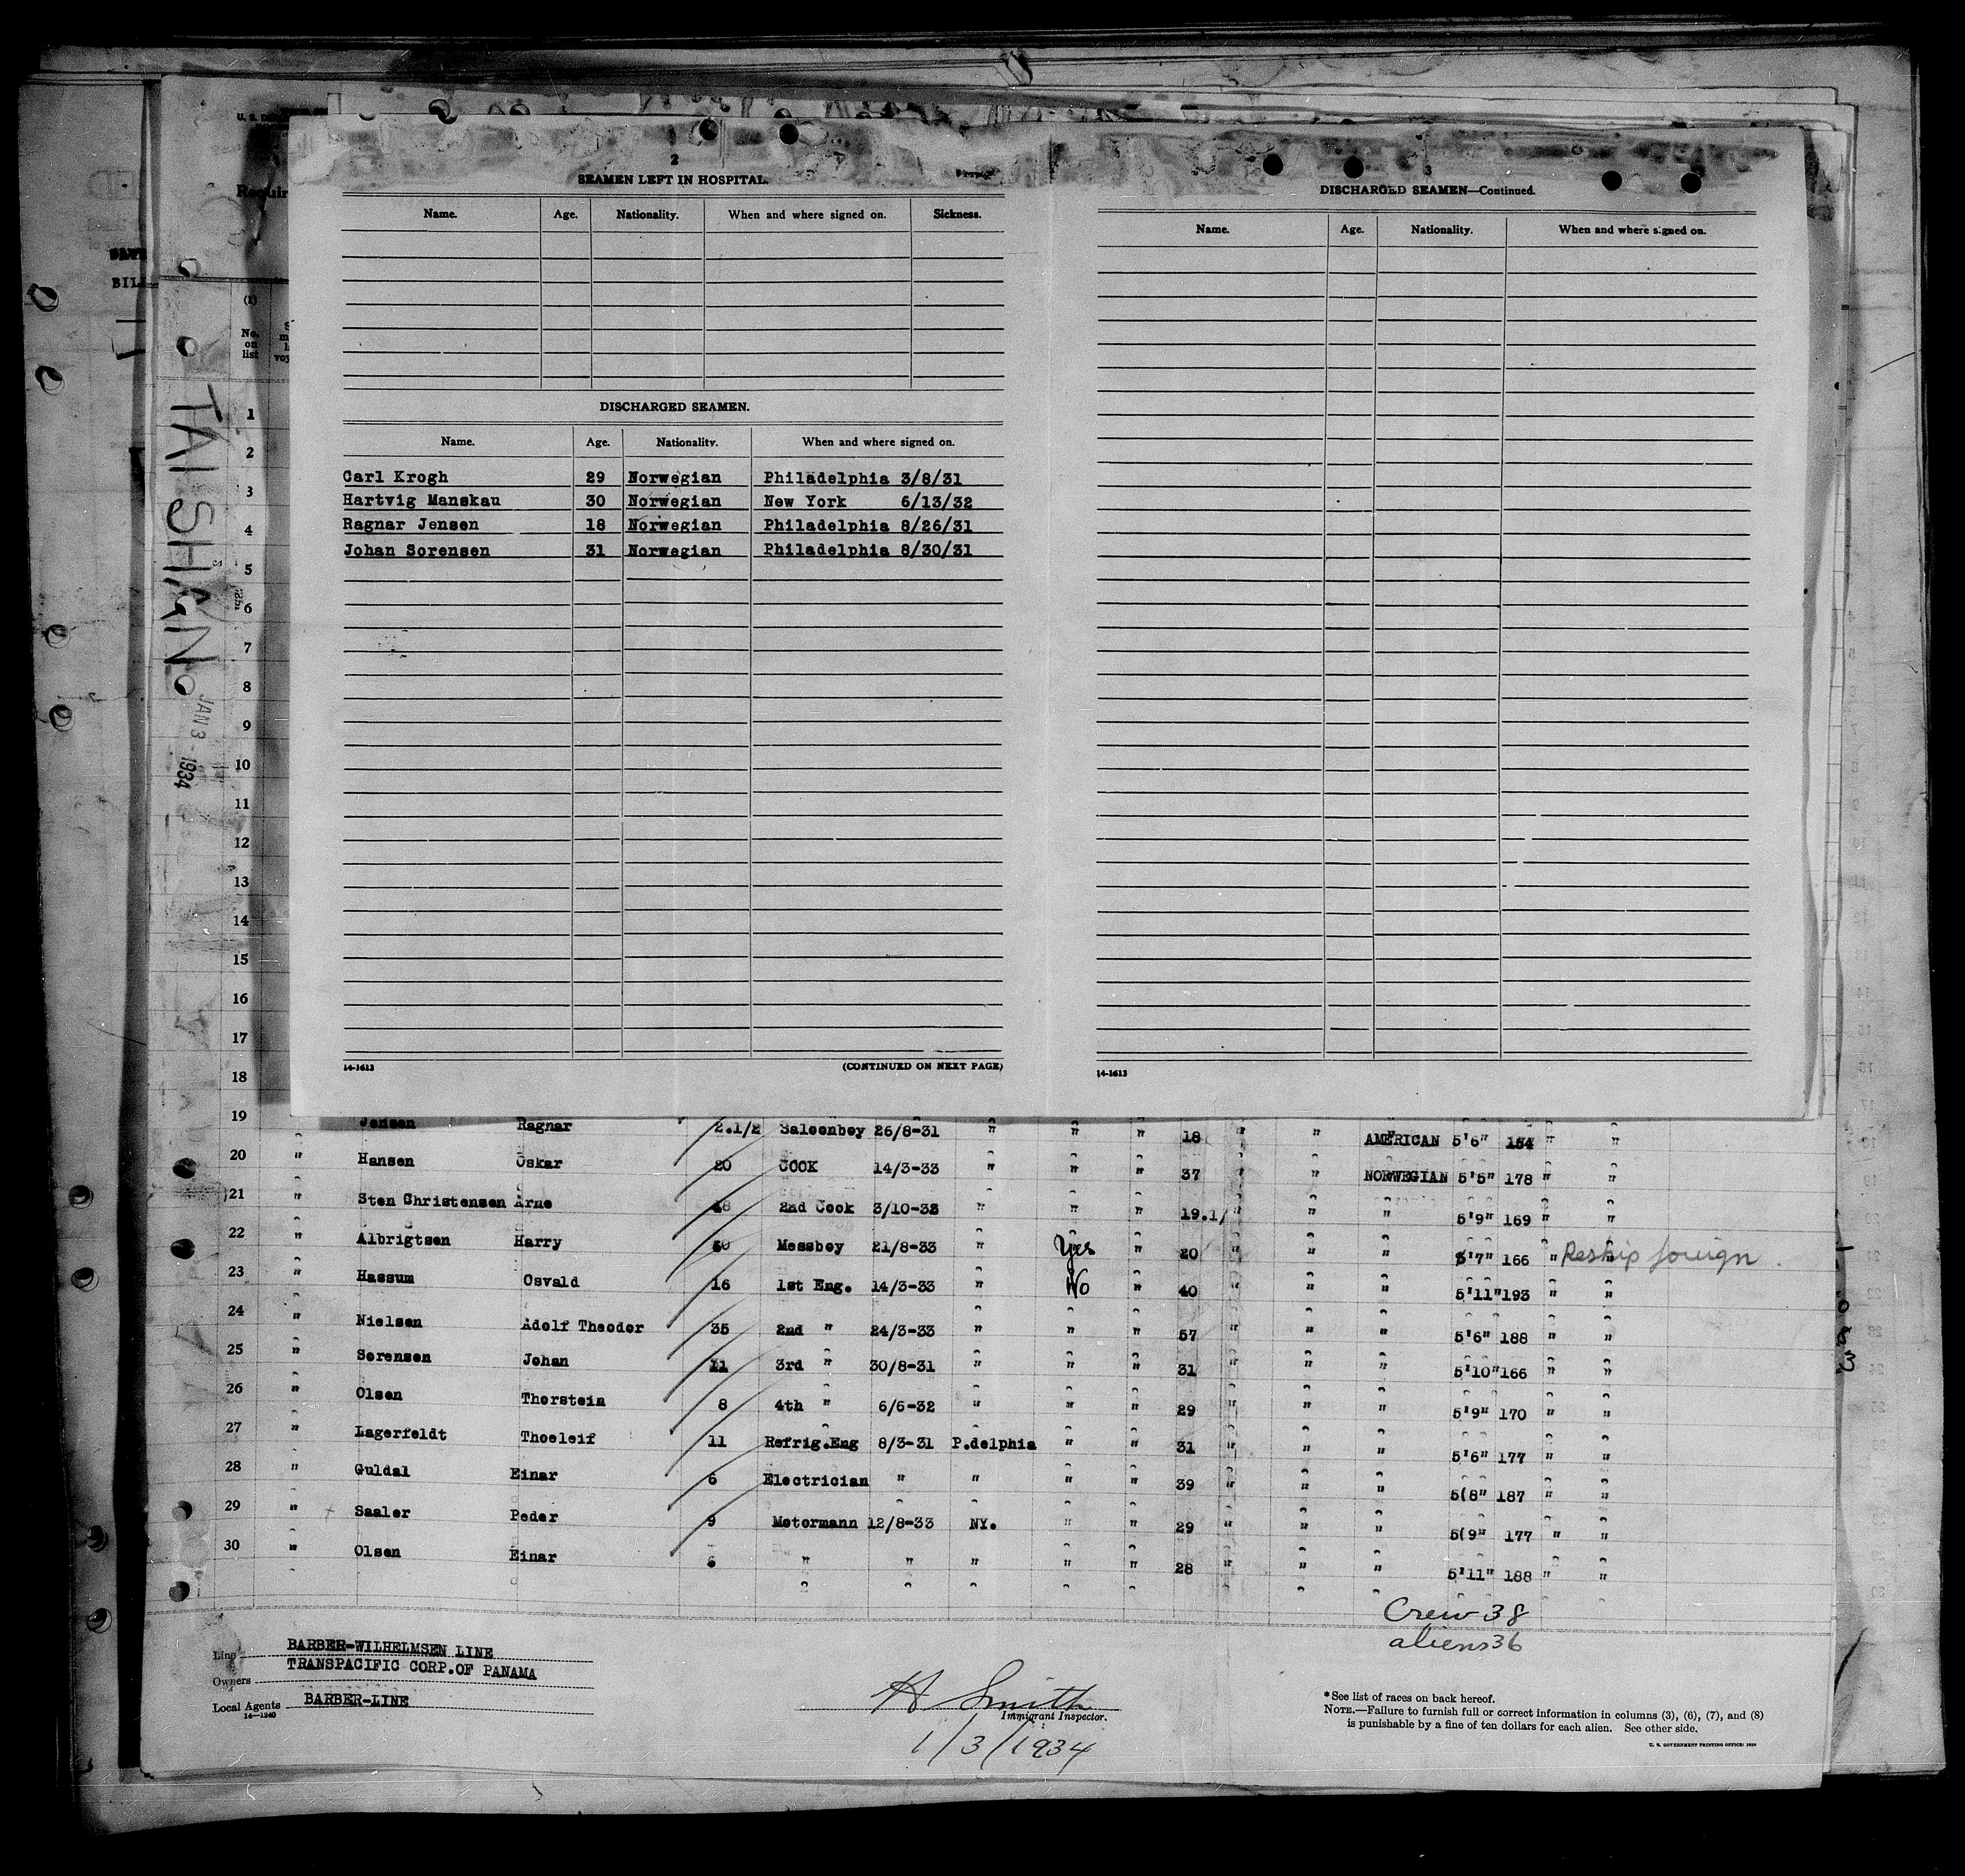 2
SEAMEN LEFT IN HOSPITAL.
Name. Age. Nationality. When and where signed on. Sickness.
DISCHARGED SEAMEN.
Name. Age. Nationality. When and where signed on.
Carl Krogh 29 Norwegian Philadelphia 3/8/31
Hartvig Manskau 30 Norwegian New York 6/13/32
Ragnar Jensen 18 Norwegian Philadelphia 8/26/31
Johan Sorensen 31 Norwegian Philadelphia 8/30/31
14-1613 (CONTINUED ON NEXT PAGE)
3
DISCHARGED SEAMEN—Continued.
Name. Age. Nationality. When and where signed on.
14-1613
U. S.
BILL
(1)
No. on list
TAI SHAN
JAN 3 - 1934
1
2
3
4
5
6
7
8
9
10
11
12
13
14
15
16
17
18
19 Jensen Ragnar 2.1/2 Saloonboy 26/8-31 " " " 18 " " AMERICAN 5'6" 154 " "
20 " Hansen Oskar 20 COOK 14/3-33 " " " 37 " " NORWEGIAN 5'5" 178 " "
21 " Sten Christensen Arne 2nd Cook " " " 19.1/ " " " 5'9" 169 " "
22 " Albrigtsen Harry Messboy 21/8-33 " Yes " 20 " " " 5'7" 166 " Reship foreign
23 " Hassum Osvald 16 1st Eng. 14/3-33 " No " 40 " " " 5'11" 193 " "
24 " Nielsen Adolf Theodor 35 2nd " 24/3-33 " " " 57 " " " 5'6" 188 " "
25 " Sorensen Johan 11 3rd " 30/8-31 " " " 31 " " " 5'10" 166 " "
26 " Olsen Thorstein 8 4th " 6/6-32 " " " 29 " " " 5'9" 170 " "
27 " Lagerfeldt Thoeleif 11 Refrig.Eng 8/3-31 P.delphia " " 31 " " " 5'6" 177 " "
28 " Guldal Einar 6 Electrician " " " " 39 " " " 5(8" 187 " "
29 " Saaler Peder 9 Motormann 12/8-33 NY. " " 29 " " " 5(9" 177 " "
30 " Olsen Einar 6 " " " " " 28 " " " 5'11" 188 " "
Crew 38
aliens 36
Line BARBER-WILHELMSEN LINE
Owners TRANSPACIFIC CORP.OF PANAMA
Local Agents BARBER-LINE
14—1240
H Smith
Immigrant Inspector.
1/3/1934
*See list of races on back hereof.
NOTE.—Failure to furnish full or correct information in columns (3), (6), (7), and (8)
is punishable by a fine of ten dollars for each alien. See other side.
U. S. GOVERNMENT PRINTING OFFICE: